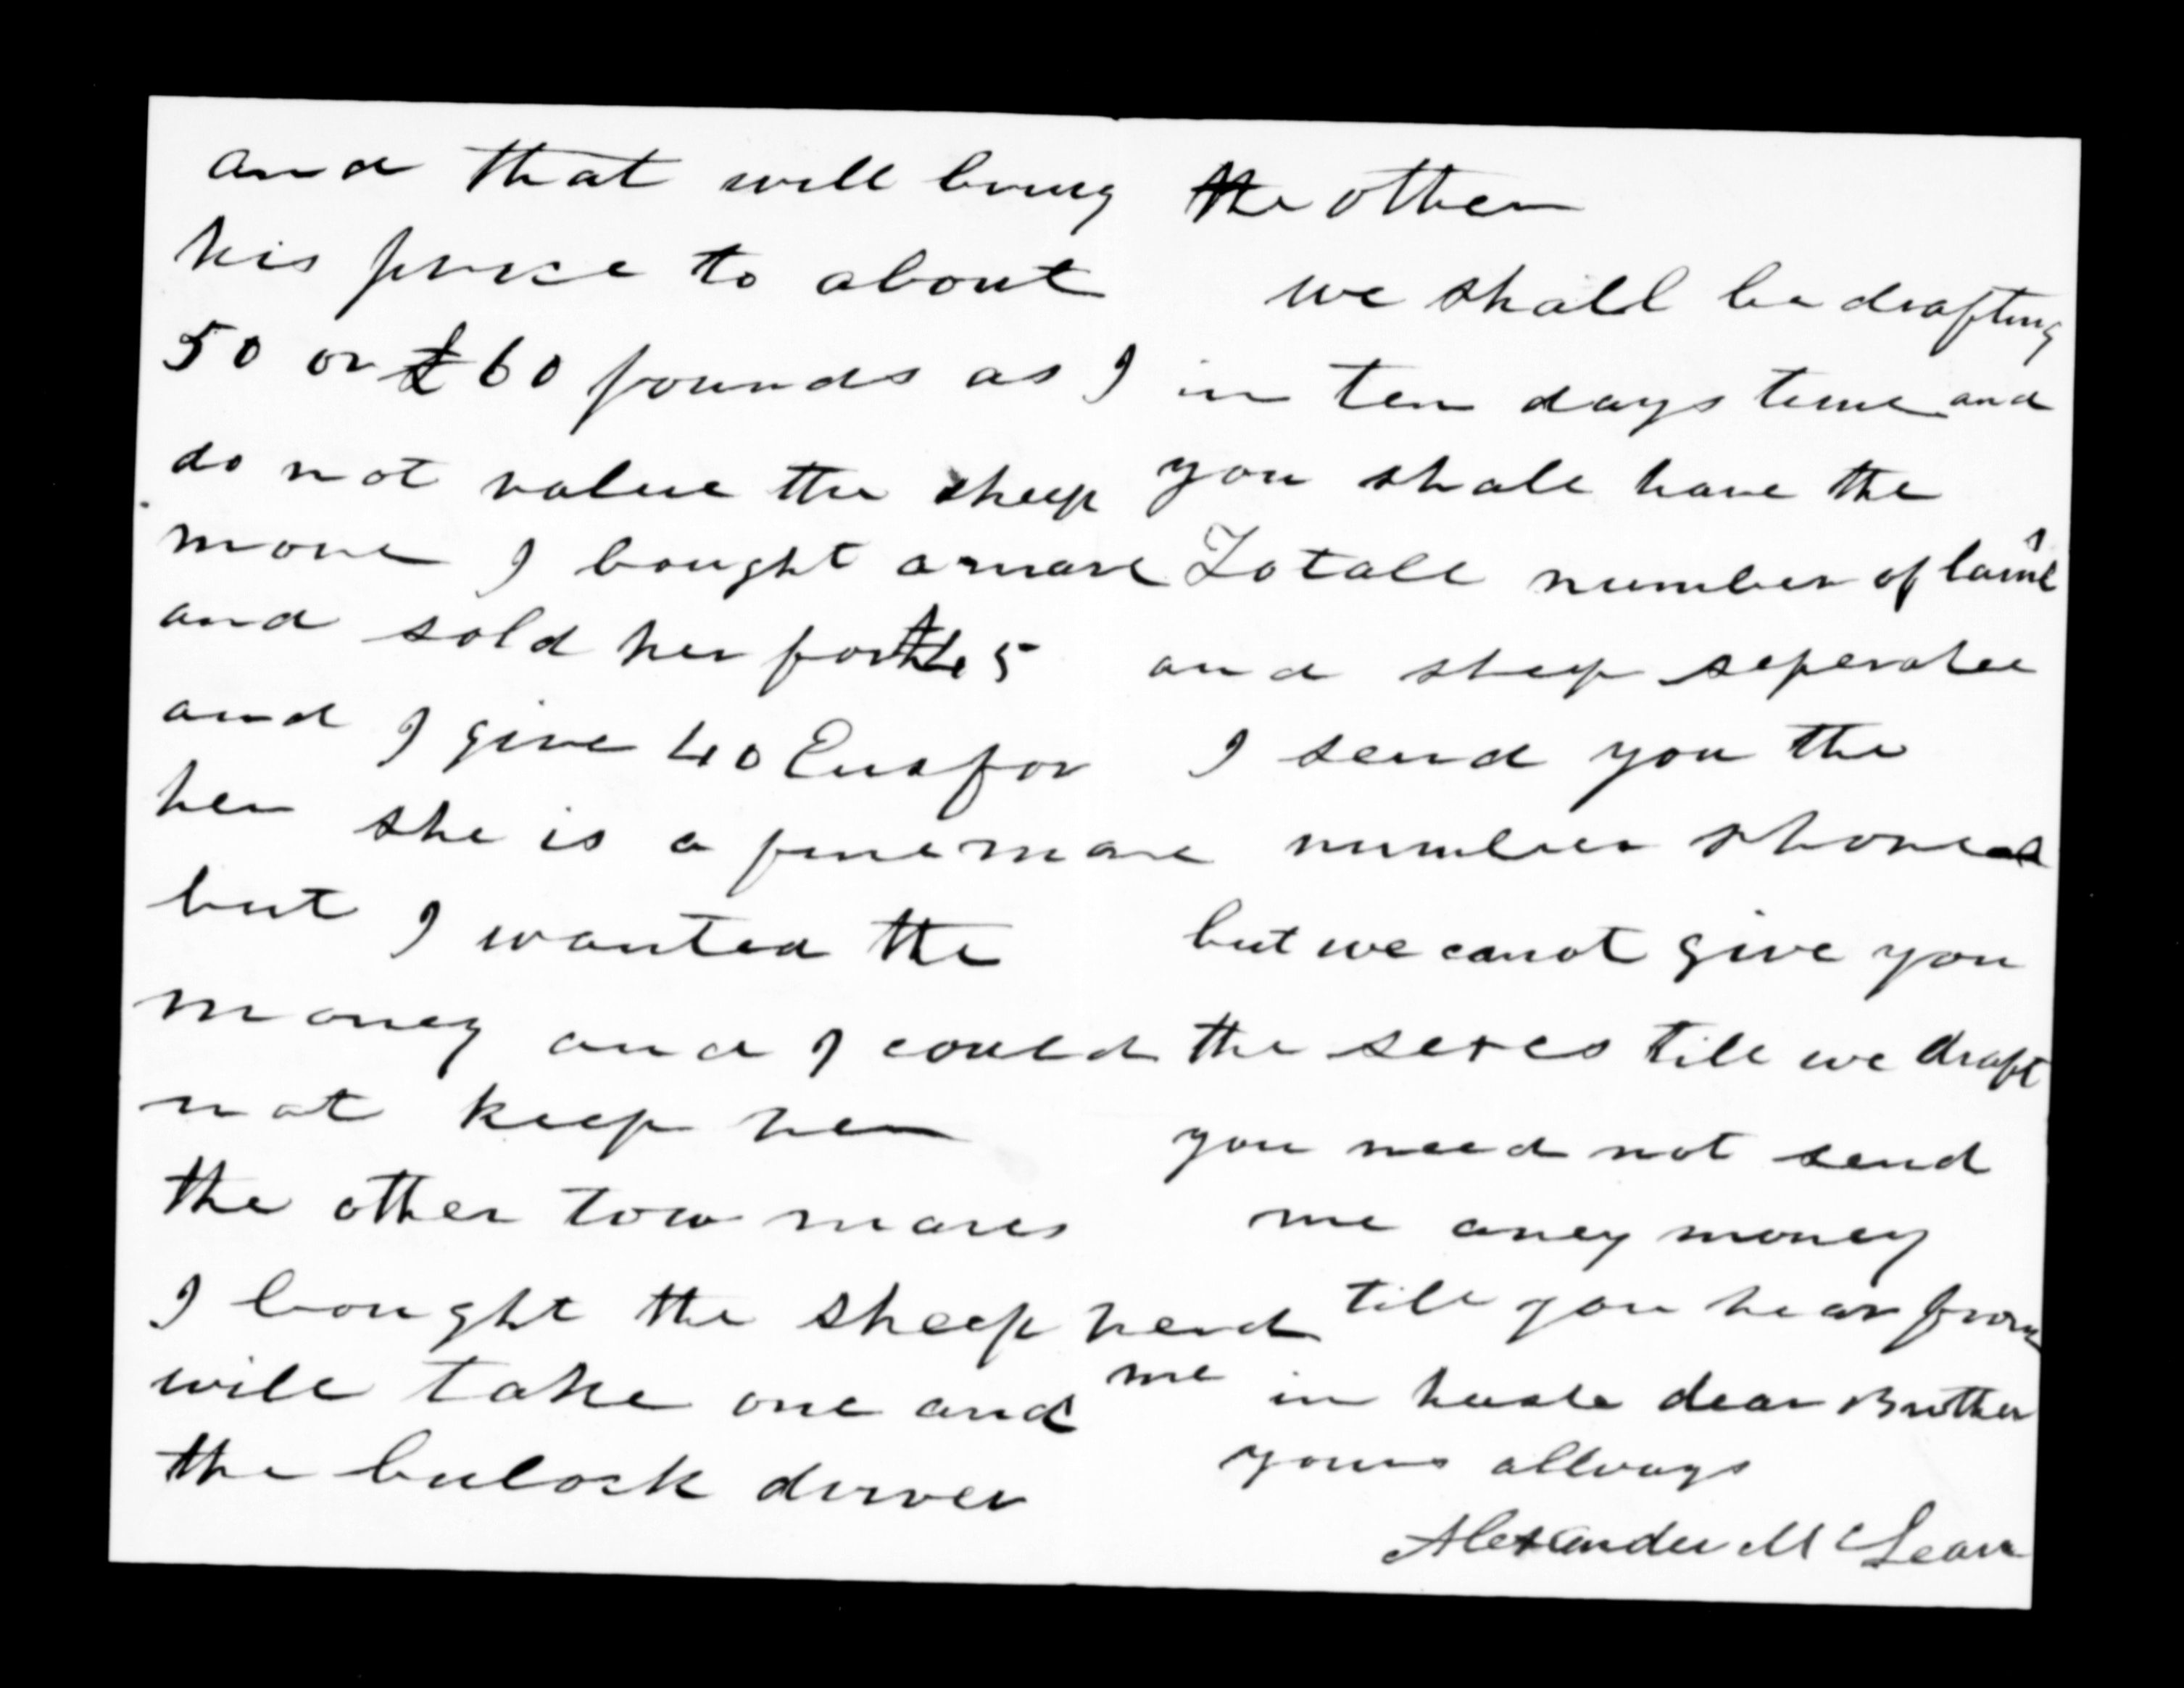 and that will bring
his price to about
50 or £60 pounds as I
do not value the sheep
more I bought a mare
and sold her for £45
and I give 40 Ews for
her she is a fine mare
but I wanted the
money and I could
not keep her
the other tow mares
I bought the sheep herd
will take one and
the bulock driver
the other
we shall be drafting
in ten days time and
you shall have the
Totall number of lambs
and sheep seperatee
I send you the
number shoned
but we canot give you
the sexes till we draft
you need not send
me aney money
till you hear from
me in haste dear Brother
yours allways
Alexander McLean